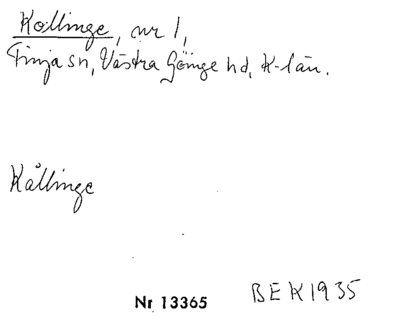 Kollinge, nr 1,
Finja sn, Västra Göinge hd, K-län.
Kållinge
Nr 13365 BEK1935